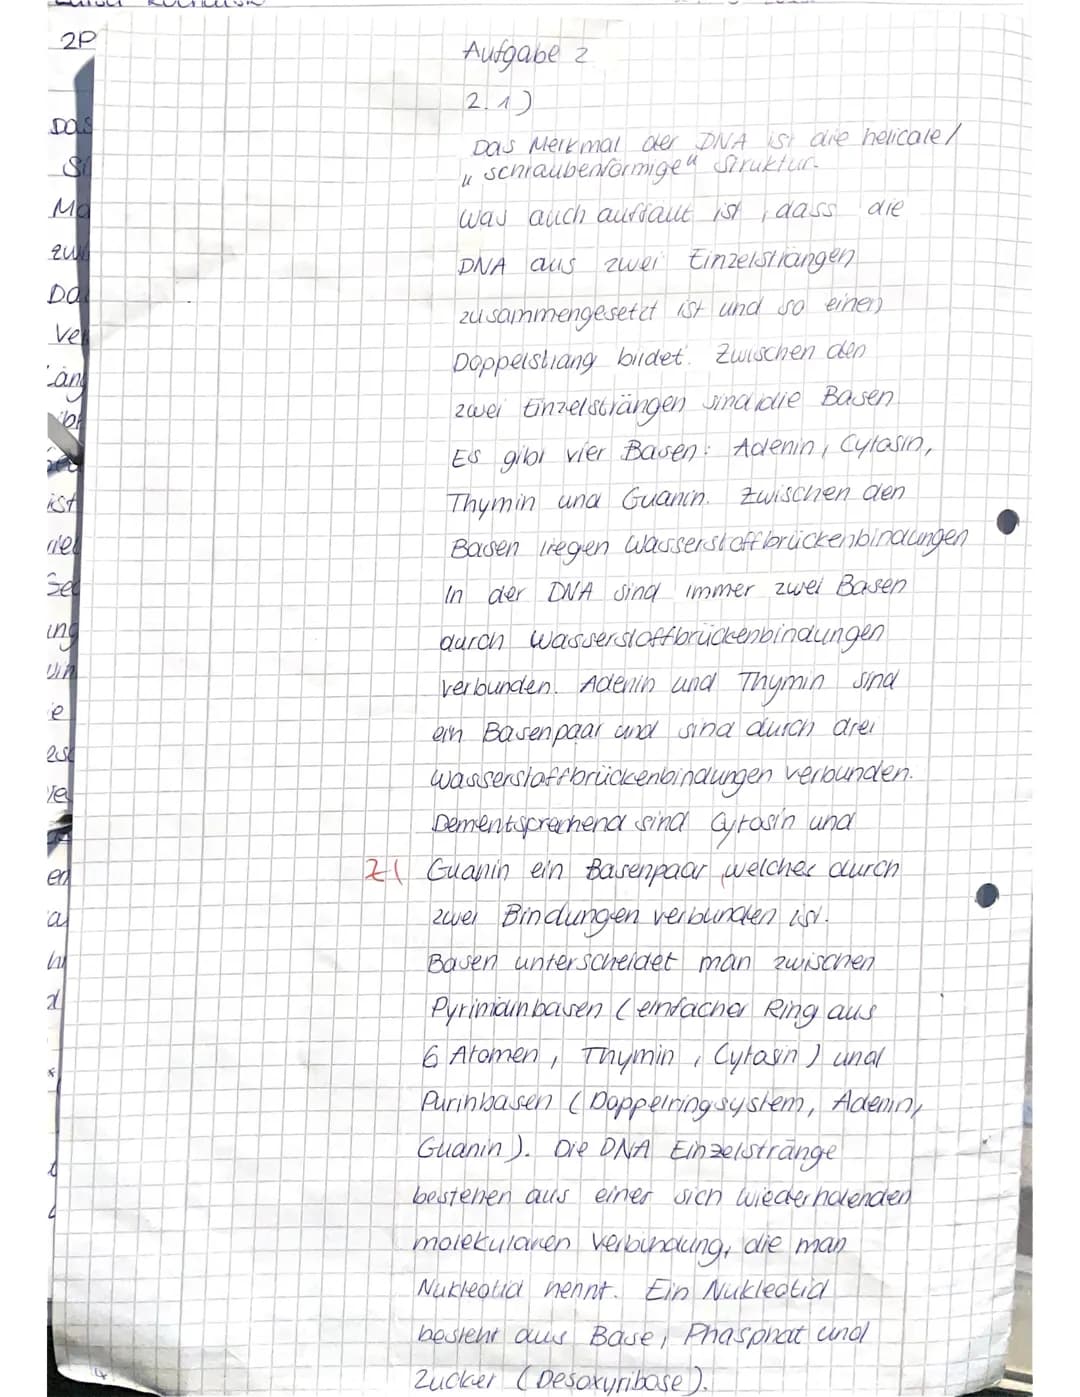 2P
Aufgabe 2
2.1)
Das Merkmal der DNA ist die helicale/
"schraubenförmige" Struktur.
Was auch auffällt ist, dass die
DNA aus zwei Einzelsträngen
zusammengesetzt ist und so einen
Doppelstrang bildet. Zwischen den
zwei Einzelsträngen sind die Basen.
Es gibt vier Basen: Adenin, Cytosin,
Thymin und Guanin. Zwischen den
Basen liegen Wasserstoffbrückenbindungen
In der DNA sind immer zwei Basen
durch Wasserstoffbrückenbindungen
verbunden. Adenin und Thymin sind
ein Basenpaar und sind durch drei
Wasserstoffbrückenbindungen verbunden.
Dementsprechend sind Cytosin und
Z( Guanin ein Basenpaar, welches durch
zwei Bindungen verbunden ist.
Basen unterscheidet man zwischen
Pyrimidinbasen (einfacher Ring aus
6 Atomen, Thymin, Cytosin) und
Purinbasen (Doppelringsystem, Adenin,
Guanin). Die DNA Einzelstränge
bestehen aus einer sich wiederholenden
molekularen Verbindung, die man
Nukleotid nennt. Ein Nukleotid
besteht aus Base, Phosphat und
Zucker (Desoxyribose).